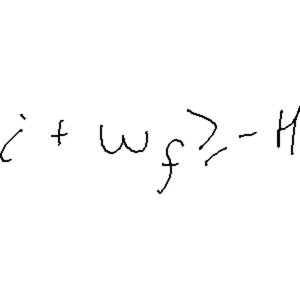 i + w_f ≥ - H